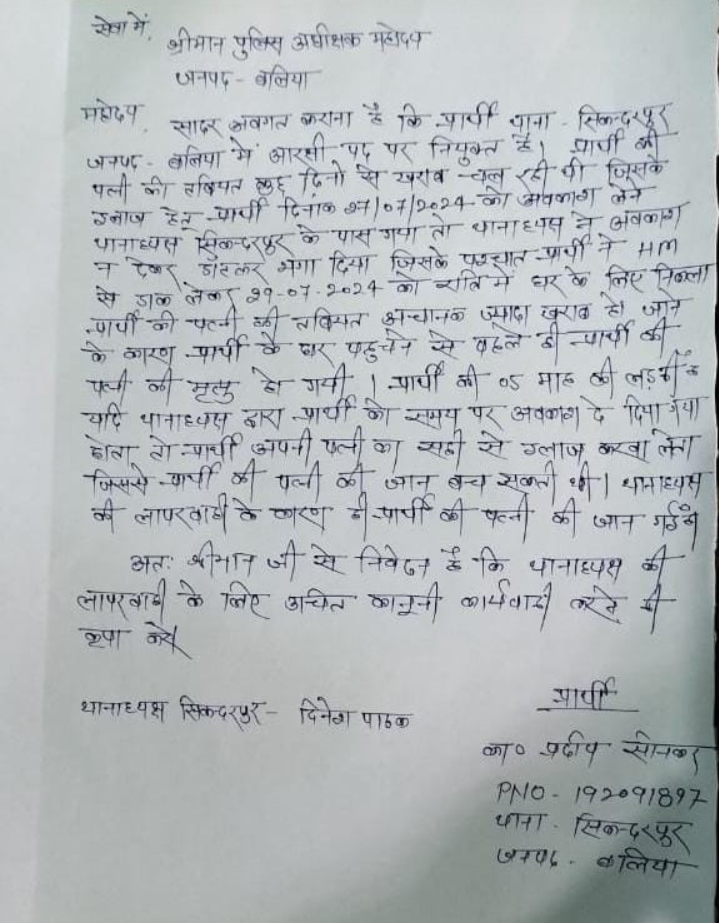 सेवा में,
श्रीमान पुलिस अधीक्षक महोदय
जनपद - बलिया
महोदय,
सादर अवगत कराना है कि प्रार्थी थाना - सिकन्दरपुर
जनपद - बलिया में आरक्षी पद पर नियुक्त है। प्रार्थी की
पत्नी की तबियत कुछ दिनो से खराब चल रही थी जिसके
इलाज हेतु प्रार्थी दिनांक 27/07/2024 को अवकाश लेने
थानाध्यक्ष सिकन्दरपुर के पास गया तो थानाध्यक्ष ने अवकाश
न देकर डांटकर भगा दिया जिसके पश्चात प्रार्थी ने HM
से डाक लेकर 29-07-2024 को रात्रि में घर के लिए निकला
प्रार्थी की पत्नी की तबियत अचानक ज्यादा खराब हो जाने
के कारण प्रार्थी के घर पहुचने से पहले ही प्रार्थी की
पत्नी की मृत्यु हो गयी। प्रार्थी की 05 माह की लड़की है
यदि थानाध्यक्ष द्वारा प्रार्थी को समय पर अवकाश दे दिया गया
होता तो प्रार्थी अपनी पत्नी का सही से इलाज करवा लेता
जिससे प्रार्थी की पत्नी की जान बच सकती थी। थानाध्यक्ष
की लापरवाही के कारण ही प्रार्थी की पत्नी की जान गई है
अतः श्रीमान जी से निवेदन है कि थानाध्यक्ष की
लापरवाही के लिए उचित कानूनी कार्यवाही करने की
कृपा करें
थानाध्यक्ष सिकन्दरपुर - दिनेश पाठक
प्रार्थी
का० प्रदीप सोनकर
PNO - 192091897
थाना - सिकन्दरपुर
जनपद - बलिया